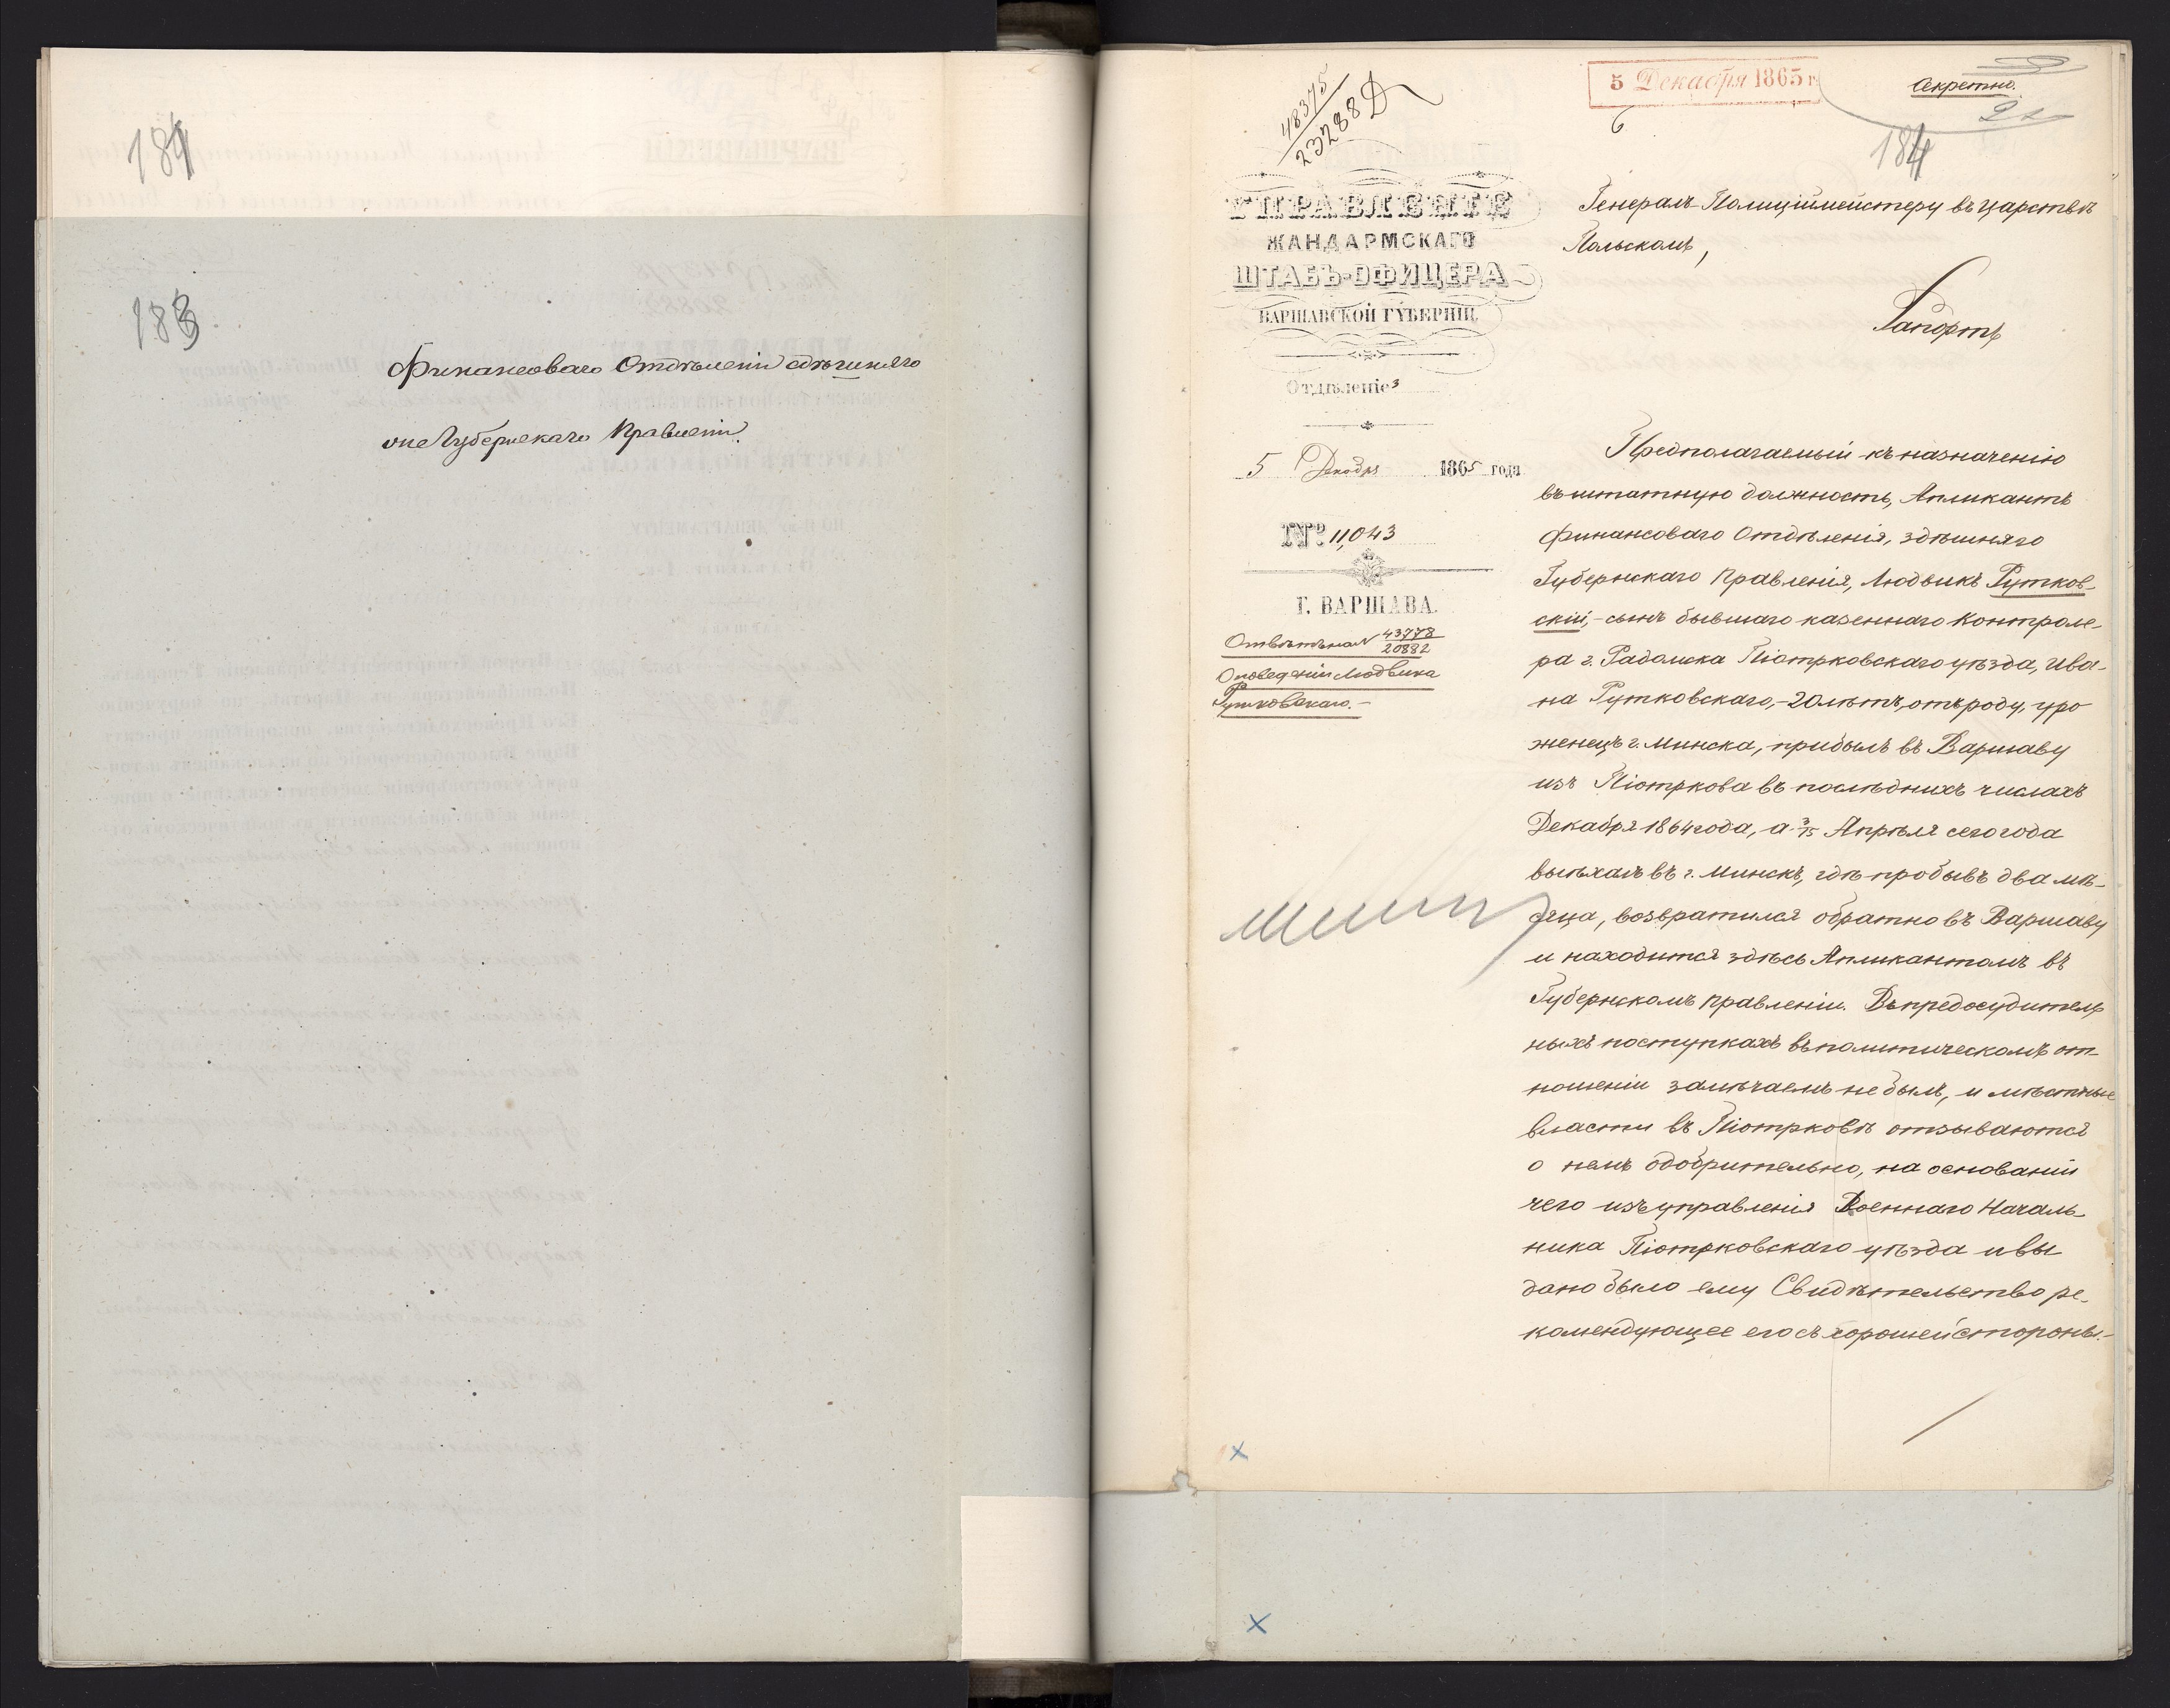 184
183
Финансоваго Отдѣленія здѣшняго
Губернскаго Правленія.
48375
23288 Д
5 Декабря 1865 г.
6
Секретно.
184
УПРАВЛЕНІЕ
ЖАНДАРМСКАГО
ШТАБЪ-ОФИЦЕРА
ВАРШАВСКОЙ ГУБЕРНІИ.
Отдѣленіе 3
5 Декабря 1865 года
№ 11,043
Г. ВАРШАВА.
43778
20882
О поведеніи Людвика
Рутковскаго.-
Генералъ-Полиціймейстеру въ Царствѣ
Польскомъ,
Рапортъ
Предполагаемый къ назначенію
въ штатную должность, Апликантъ
Финансоваго Отдѣленія, здѣшняго
Губернскаго Правленія, Людвикъ Рутков-
скій,- сынъ бывшаго казеннаго Контроле-
ра г. Радомска Піотрковскаго уѣзда, Ива-
на Рутковскаго,- 20 лѣтъ, отъ роду, уро
женецъ г. Минска, прибылъ въ Варшаву
изъ Піотркова въ послѣднихъ числахъ
Декабря 1864 года, а 3/15 Апрѣля сего года
выѣхалъ въ г. Минскъ, гдѣ пробывъ два мѣ-
сяца, возвратился обратно въ Варшаву
и находится здѣсь Апликантомъ въ
Губернскомъ Правленіи. Въ предосудитель
ныхъ поступкахъ въ политическомъ от-
ношеніи замѣчаемъ не былъ, и мѣстные
власти въ Піотрковѣ отзываются
о немъ одобрительно, на основаніи
чего изъ управленія Военнаго Началь-
ника Піотрковскаго уѣзда и вы
дано было ему Свидѣтельство ре-
комендующее его съ хорошей стороны.-